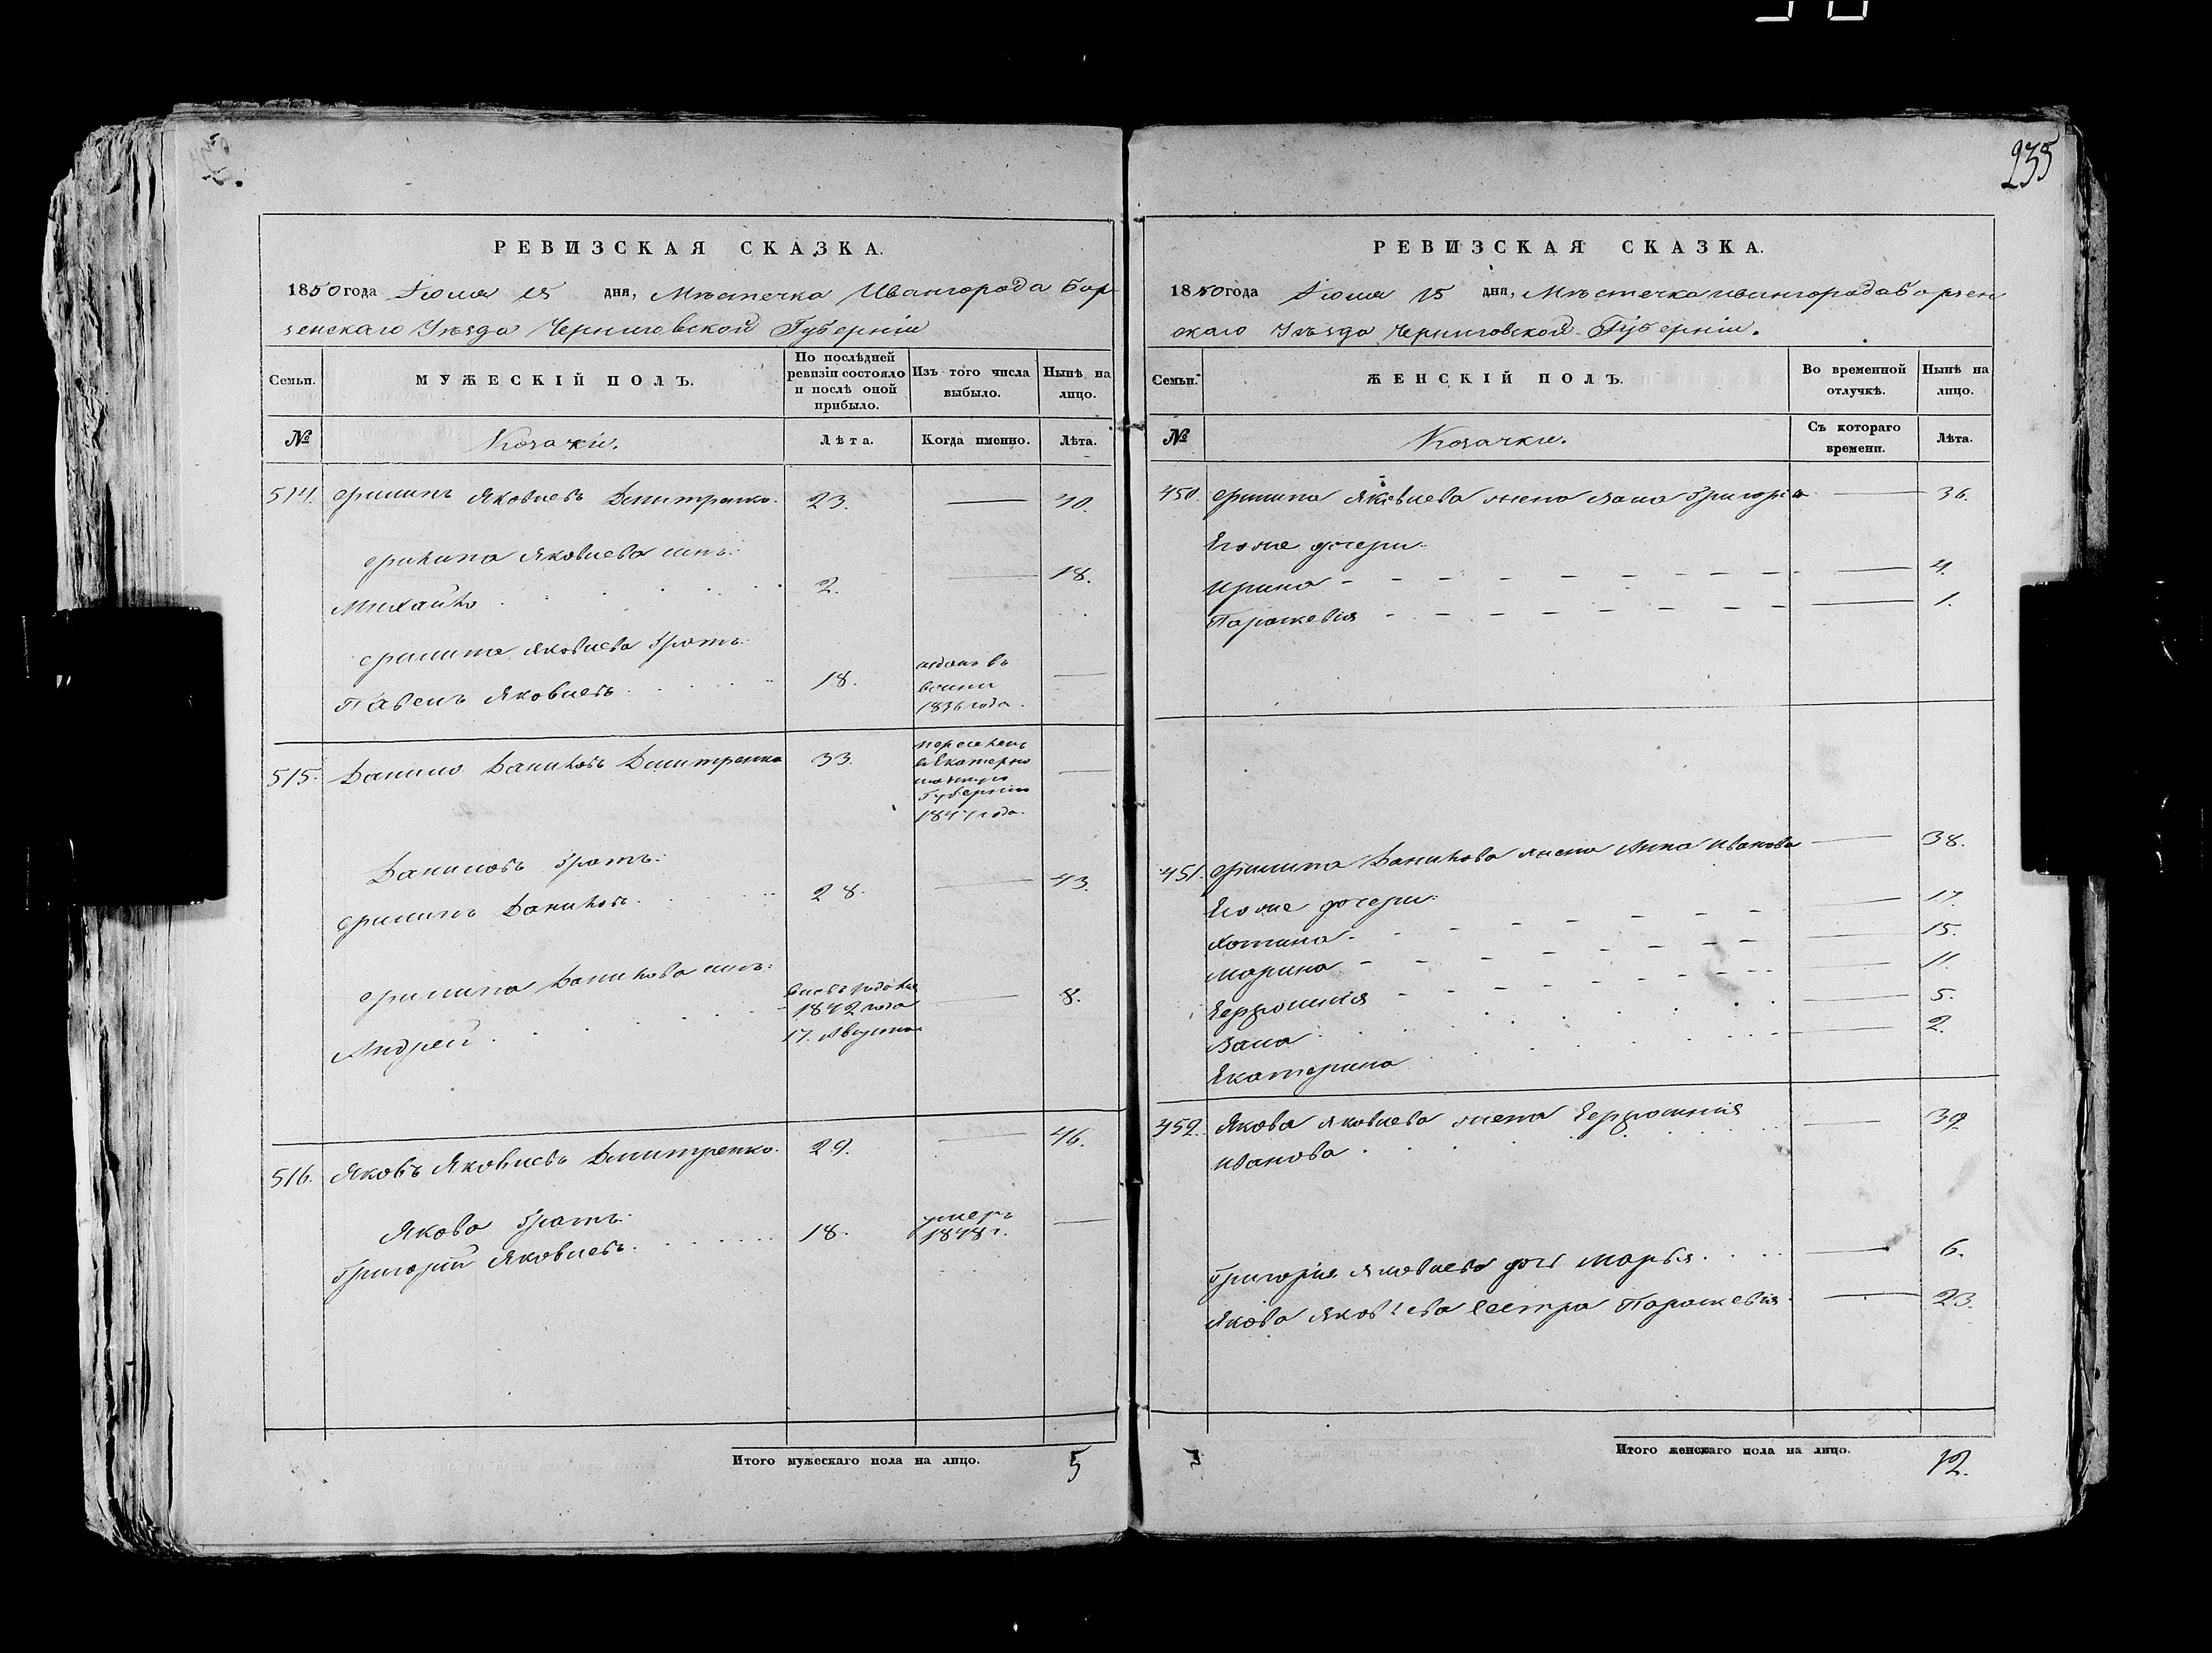 235
РЕВИЗСКАЯ СКАЗКА.
1850 года Іюля 15 дня, Мѣстечка Ивангорода Бор
зенскаго Уѣзда Черниговской Губерніи
Семьи.
МУЖЕСКІЙ ПОЛЪ.
По послѣдней ревизіи состояло и послѣ оной прибыло.
Изъ того числа выбыло.
Нынѣ на лицо.
№
Козачки.
Лѣта.
Когда именно.
Лѣта.
514. Филипъ Яковлевъ Дмитренко. 23. — 40.
Филипа Яковлева сынъ:
Михайло 2. — 18.
Филипа Яковлева братъ:
Павелъ Яковлевъ 18. —
отданъ въ
1836 года.
515. Данило Даниловъ Дмитренко 33. —
въ Екатерино
Губернію
1847 года.
Даниловъ братъ:
Филипъ Даниловъ. 28. — 43.
Филипа Данилова сынъ:
Андрей. — 8.
1842 года
17. Августа
516. Яковъ Яковлевъ Дмитренко. 29. — 46.
Якова братъ:
Григорій Яковлевъ. 18. умеръ —
1848 г.
Итого мужескаго пола на лицо. 5
РЕВИЗСКАЯ СКАЗКА.
1850 года Іюля 15 дня, Мѣстечка Ивангорода Борзен
скаго Уѣзда Черниговской Губерніи.
Семьи.
ЖЕНСКІЙ ПОЛЪ.
Во временной отлучкѣ.
Нынѣ на лицо.
№
Козачки.
Съ котораго времени.
Лѣта.
450. Филипа Яковлева жена — 36.
Его же дочери:
Ирина — 4.
Параскевія — 1.
451. Филипа Данилова жена Анна Иванова — 38.
Его же дочери: — 17.
— 15.
Марина — 11.
Евфросинія — 5.
— 2.
Екатерина
452. Якова Яковлева жена Евфросинія — 39.
Иванова
Григорія Яковлева дочь Марья. — 6.
Якова Яковлева сестра Параскевія — 23.
Итого женскаго пола на лицо. 12.